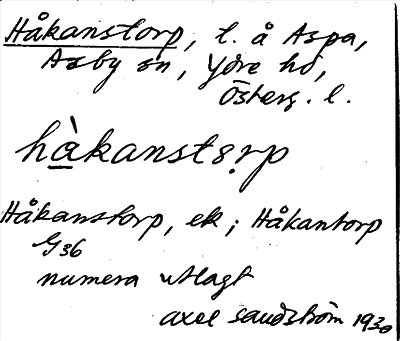 Håkanstorp, t. å Aspa,
Asby sn, Ydre hd,
Österg. l.
hå̀kansto̤rp
Håkanstorp, ek; Håkantorp
G36
numera utlagt
Axel Sandström 1930